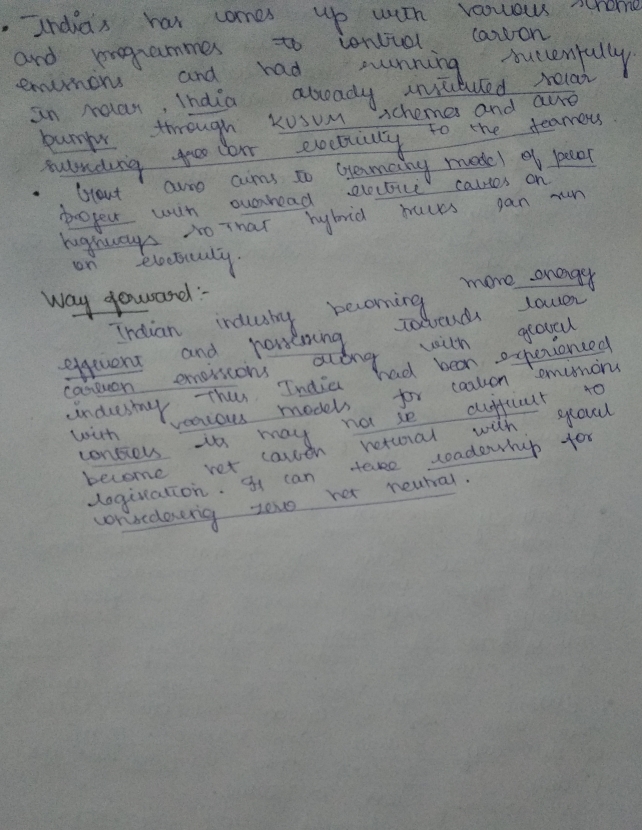 • India's has comes up with various scheme
and programmes to control carbon
emissions and had running sucessfully.
In solar, India already instituted solar
bumps through KUSUM schemes and also
subsiding free corr electricity to the feamers.
• Govt also aims to Germany model of pilot
project with overhead electric cables on
highways so that hybrid trucks can run
on electricity.
Way forward:-
Indian industry becoming more energy
efficient and possessing towards lower
carbon emissions along with global
industry Thus India had been experienced
with various models for carbon emissions
controls its may not be difficult to
become net carbon netural with global
legisation. It can take leadership for
consedering zero net neutral.